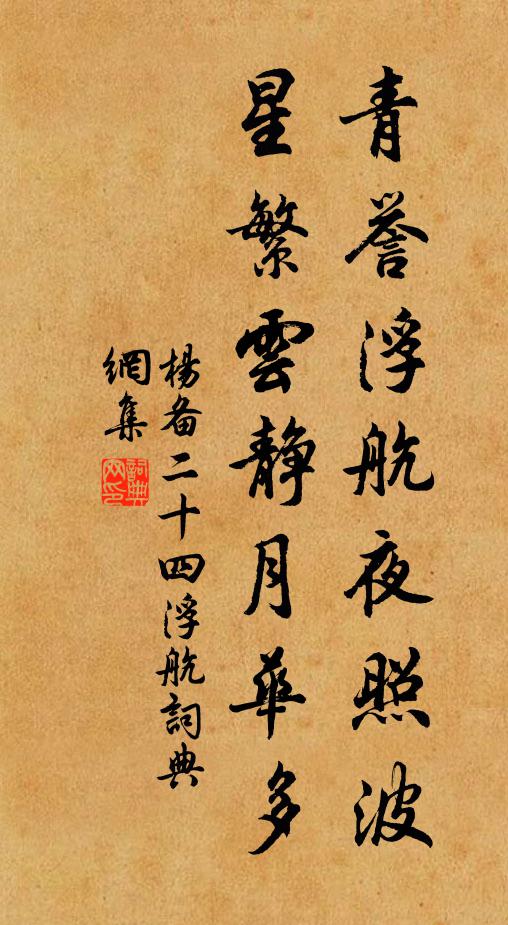 青誉浮航夜照波
星繁雲静月華多
楊备二十四浮航詞典
網集
詞典網印